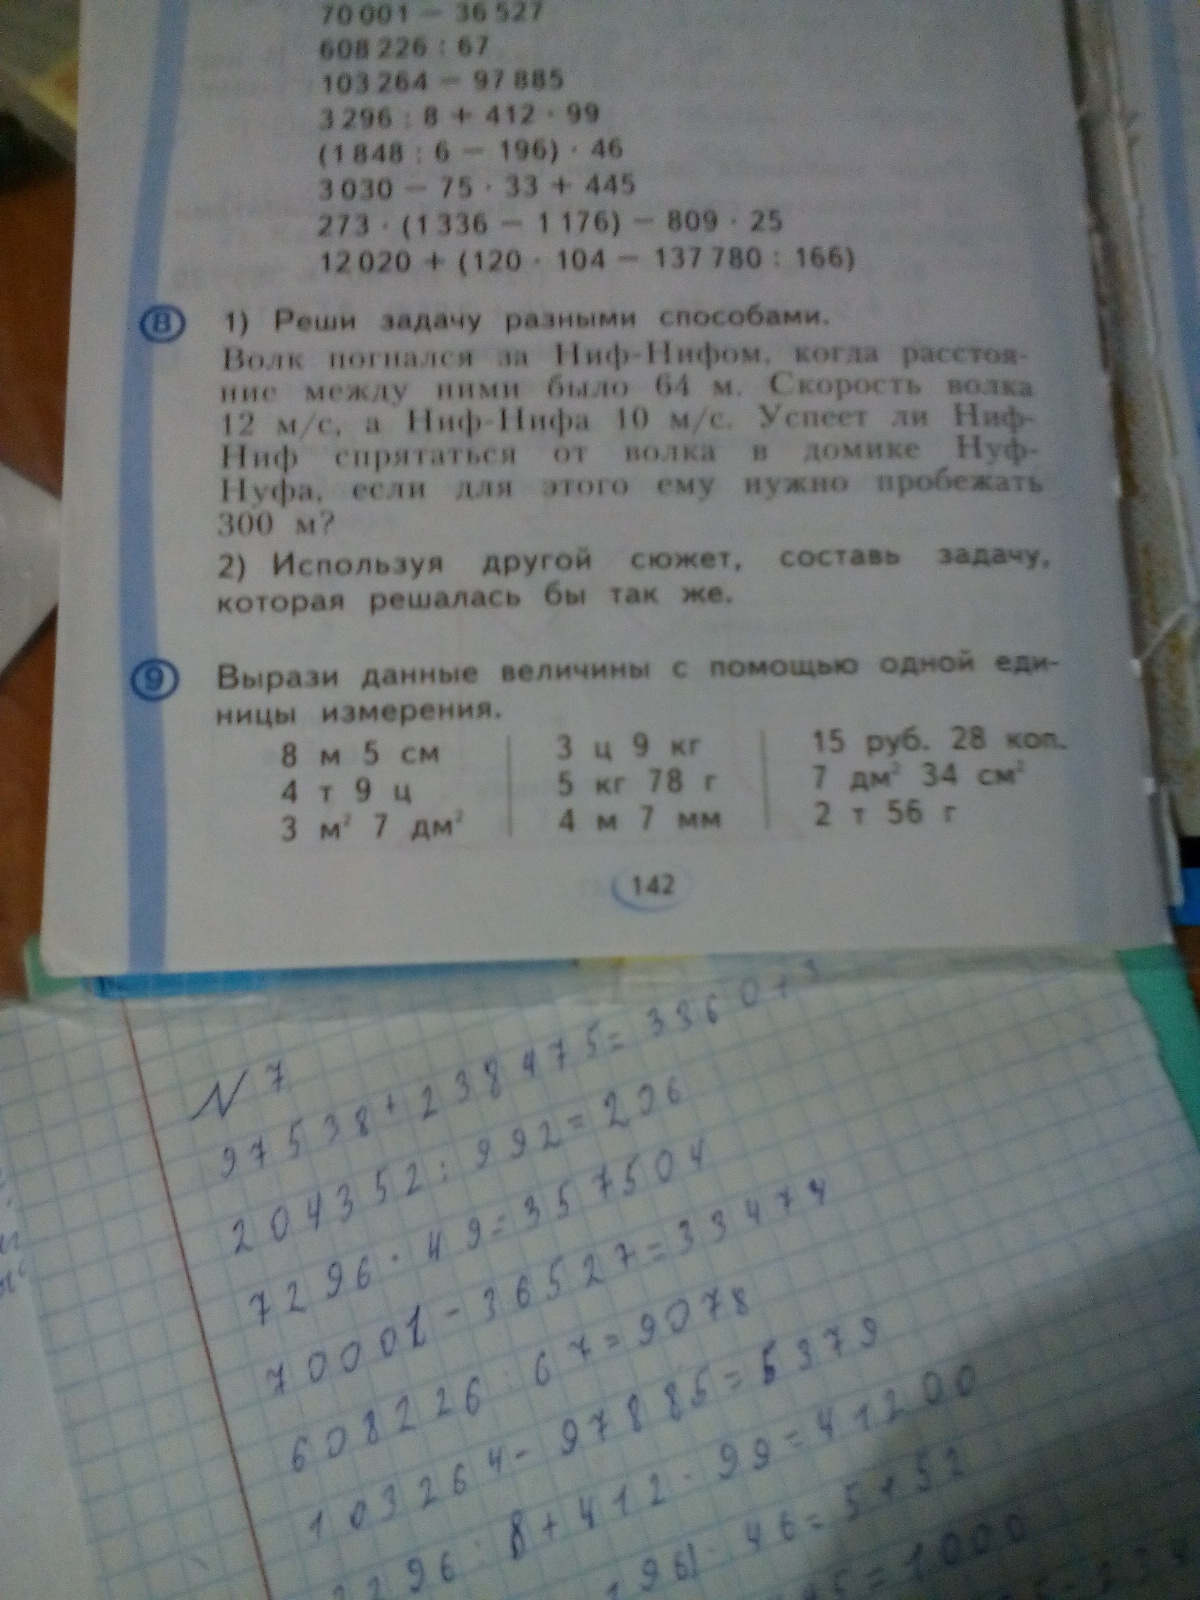 70 001 − 36 527
608 226 : 67
103 264 − 97 885
3 296 : 8 + 412 · 99
(1 848 : 6 − 196) · 46
3 030 − 75 · 33 + 445
273 · (1 336 − 1 176) − 809 · 25
12 020 + (120 · 104 − 137 780 : 166)
8 1) Реши задачу разными способами.
Волк погнался за Ниф-Нифом, когда расстоя-
ние между ними было 64 м. Скорость волка
12 м/с, а Ниф-Нифа 10 м/с. Успеет ли Ниф-
Ниф спрятаться от волка в домике Нуф-
Нуфа, если для этого ему нужно пробежать
300 м?
2) Используя другой сюжет, составь задачу,
которая решалась бы так же.
9 Вырази данные величины с помощью одной еди-
ницы измерения.
8 м 5 см 3 ц 9 кг 15 руб. 28 коп.
4 т 9 ц 5 кг 78 г 7 дм² 34 см²
3 м² 7 дм² 4 м 7 мм 2 т 56 г
142
N 7
97538+238475=336013
204352:992=206
7296·49=357504
70001-36527=33474
608226:67=9078
103264-97885=5379
296:8+412·99=41200
196)·46=5152
45=1000